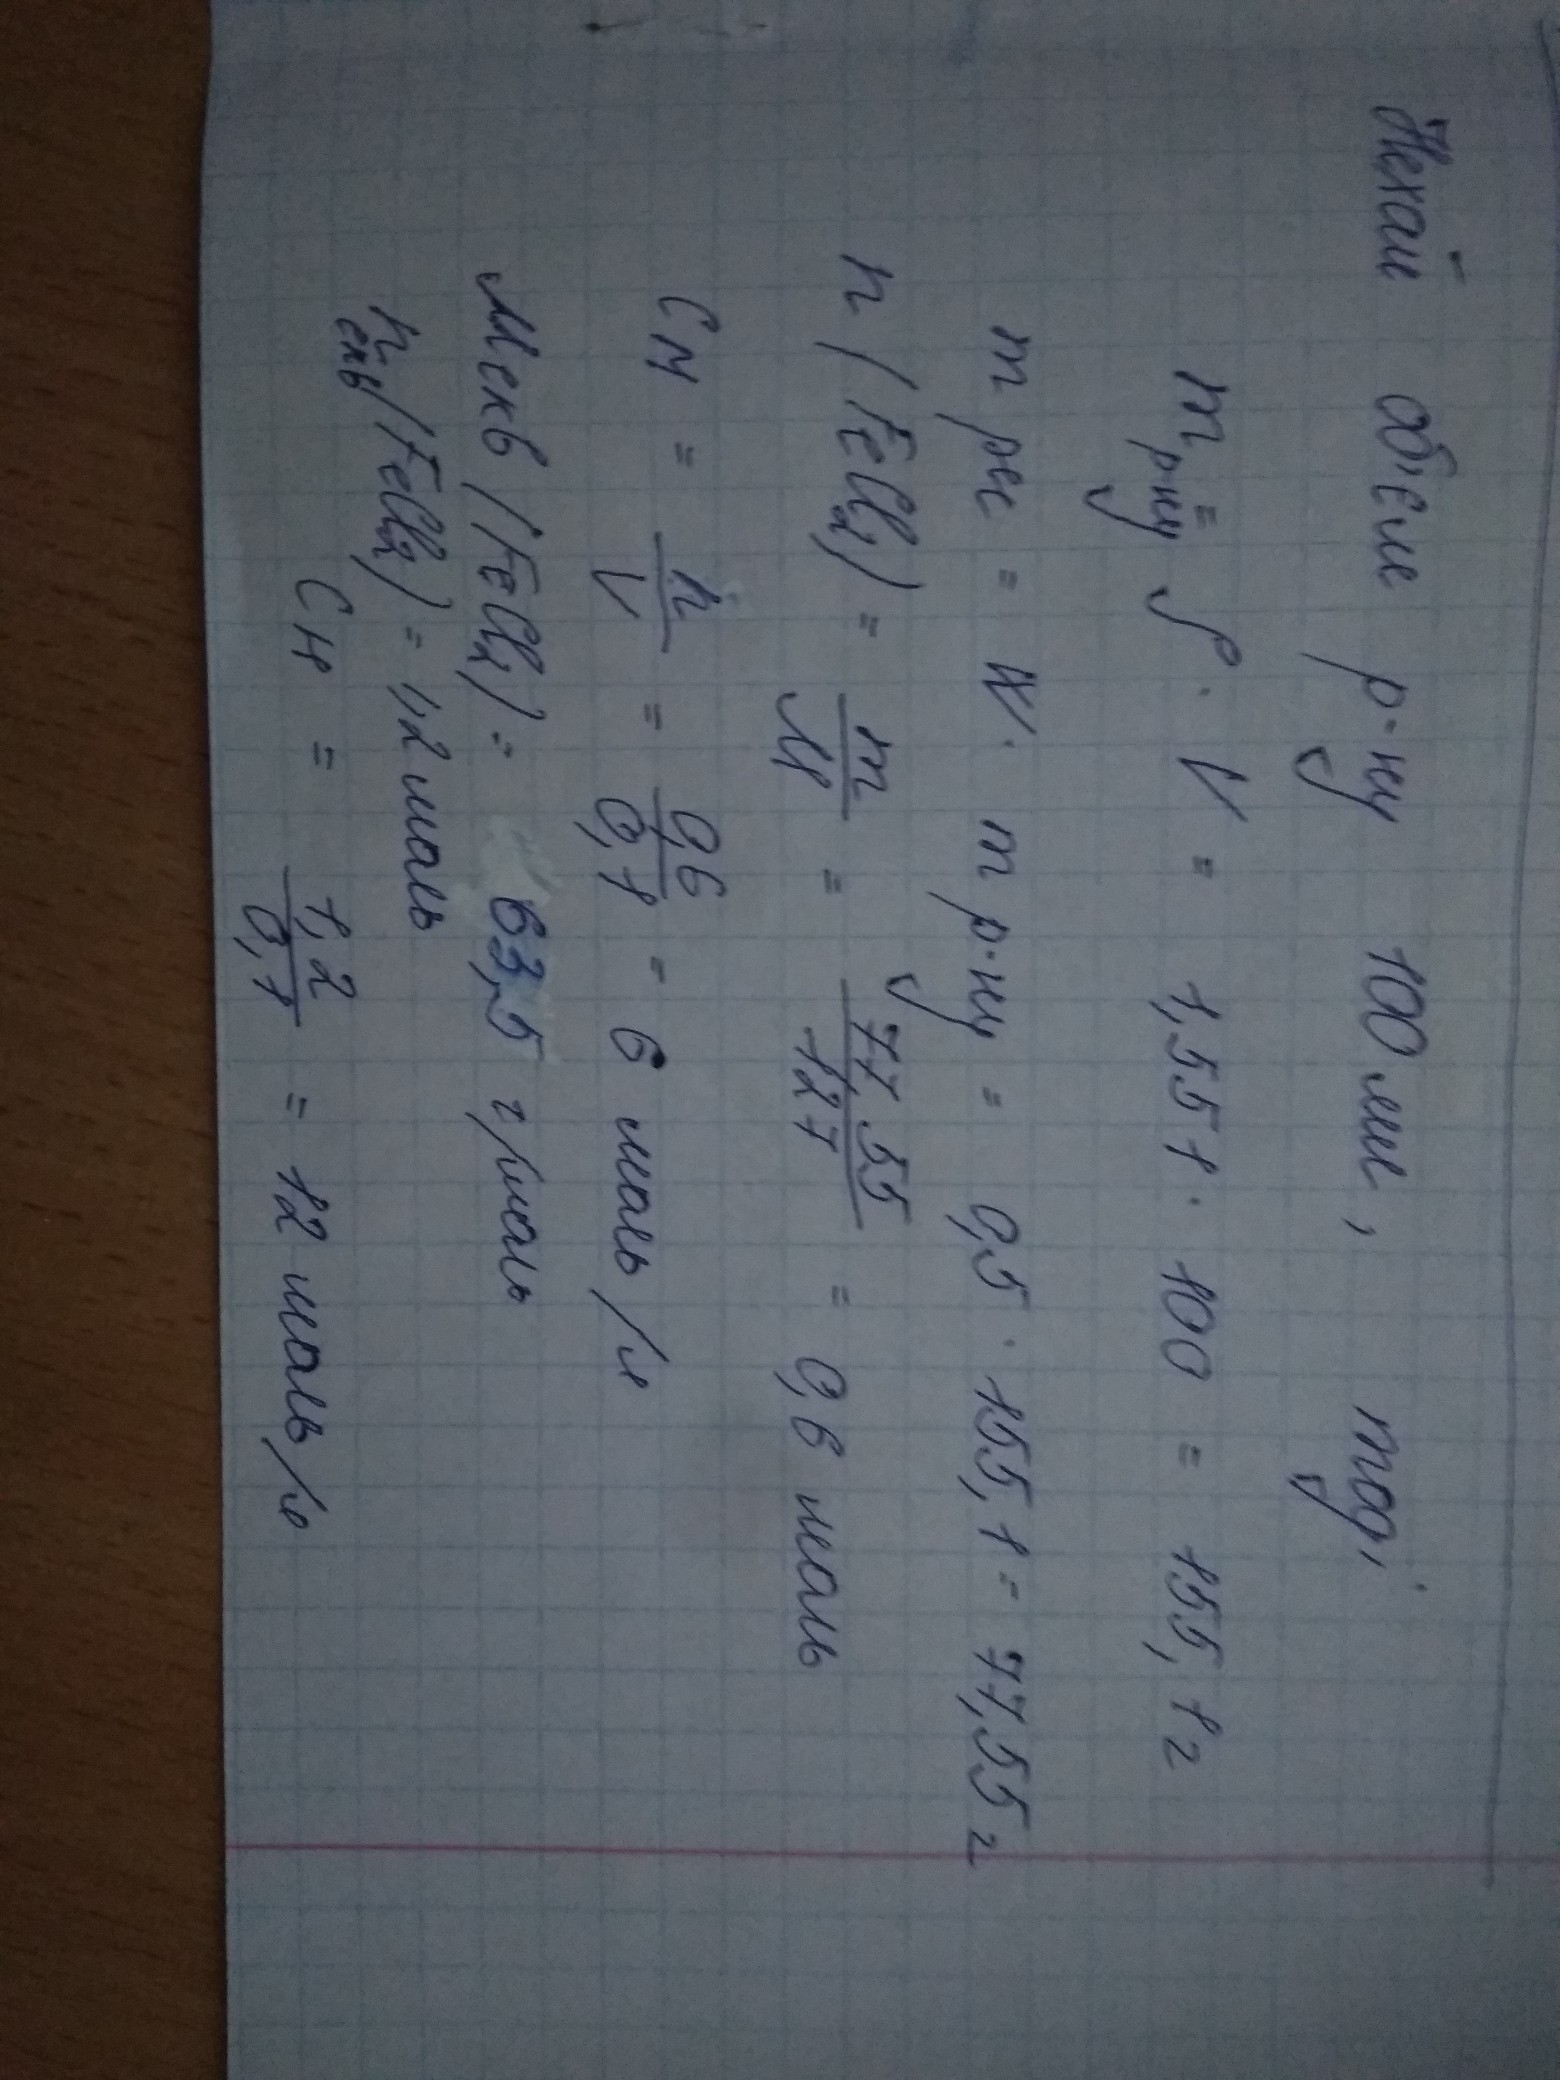 Нехай об'єм р-ну 100 мл, тоді
m р-ну = ρ · V = 1,551 · 100 = 155,1 г
m реч = W · m р-ну = 0,5 · 155,1 = 77,55 г
n (FeCl2) = m/M = 77,55/127 = 0,6 моль
CM = n/V = 0,6/0,1 = 6 моль/л
Mекв (FeCl2) = 63,5 г/моль
nекв (FeCl2) = 1,2 моль
CH = 1,2/0,1 = 12 моль/л